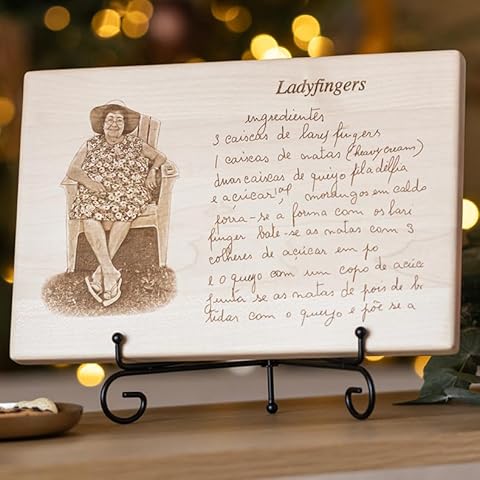 Ladyfingers
ingredientes
3 caixas de lary fingers
1 caixas de natas (heavy cream)
duas caixas de queijo filadélfia
e açúcar morangos em caldo
forra-se a forma com os lari
finger bate-se as natas com 3
colheres de acúcar em po
e o queijo com um copo de acúca
junta se as natas de pois de ba
tidas com o queijo e põe se a